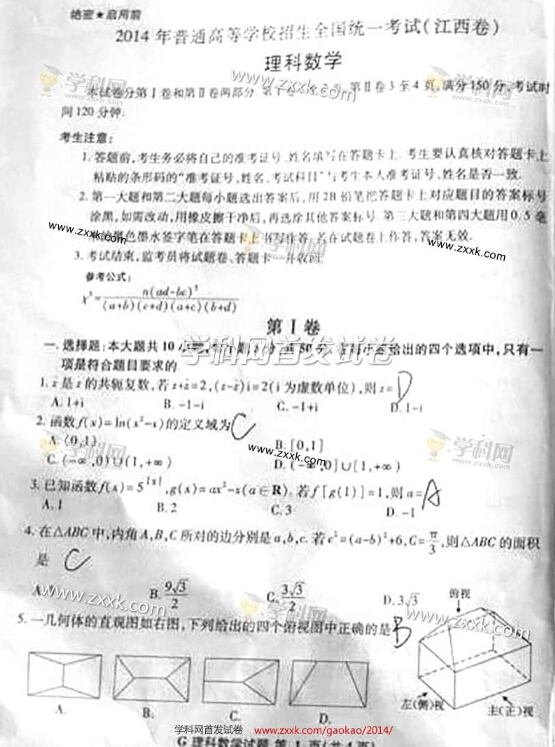 绝密★启用前
2014年普通高等学校招生全国统一考试(江西卷)
理科数学
本试卷分第Ⅰ卷和第Ⅱ卷两部分 第Ⅱ卷3至4页,满分150分,考试时
间120分钟.
考生注意:
1.答题前,考生务必将自己的准考证号、姓名填写在答题卡上.考生要认真核对答题卡上
粘贴的条形码的“准考证号、姓名、考试科目”与考生本人准考证号、姓名是否一致.
2.第一大题和第二大题每小题选出答案后,用2B铅笔把答题卡上对应题目的答案标号
涂黑,如需改动,用橡皮擦干净后,再选涂其他答案标号.第三大题和第四大题用0.5毫
黑色墨水签字笔在答题卡上书写作答,若在试题卷上作答,答案无效.
3.考试结束,监考员将试题卷、答题卡一并收回.
参考公式:
x²=n(ad-bc)²/(a+b)(c+d)(a+c)(b+d)
第Ⅰ卷
一.选择题:本大题共10小题 50分.给出的四个选项中,只有一
项是符合题目要求的.
1.z̄是z的共轭复数,若z+z̄=2,(z-z̄)i=2(i为虚数单位),则z= D
A.1+i B.-1-i C.-1+i D.1-i
2.函数f(x)=ln(x²-x)的定义域为 C
A.(0,1) B.[0,1]
C.(-∞,0)∪(1,+∞) D.(-∞,0]∪[1,+∞)
3.已知函数f(x)=5^|x|,g(x)=ax²-x(a∈R).若f[g(1)]=1,则a= A
A.1 B.2 C.3 D.-1
4.在△ABC中,内角A,B,C所对的边分别是a,b,c.若c²=(a-b)²+6,C=π/3,则△ABC的面积
是 C
A. B.9√3/2 C.3√3/2 D.3√3
5.一几何体的直观图如右图,下列给出的四个俯视图中正确的是 B
俯视
左(侧)视 主(正)视
A. B. C. D.
学科网首发试卷 www.zxxk.com/gaokao/2014/
G 理科数学试题 第1页(共4页)
学科网首发试卷
学科网
www.zxxk.com